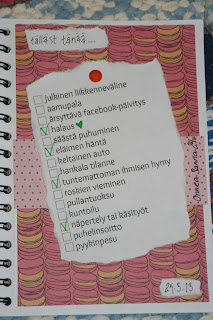 tälläst tänää...
julkinen liikkenneväline
aamupala
ärsyttävä facebook-päivitys
halaus
säästä puhuminen
eläimen häntä
keltainen auto
hankala tilanne
tuntemattoman ihmisen hymy
roskien vieminen
pullantuoksu
kuntoilu
näpertely tai käsityöt
puhelinsoitto
pyykinpesu
29.5.13